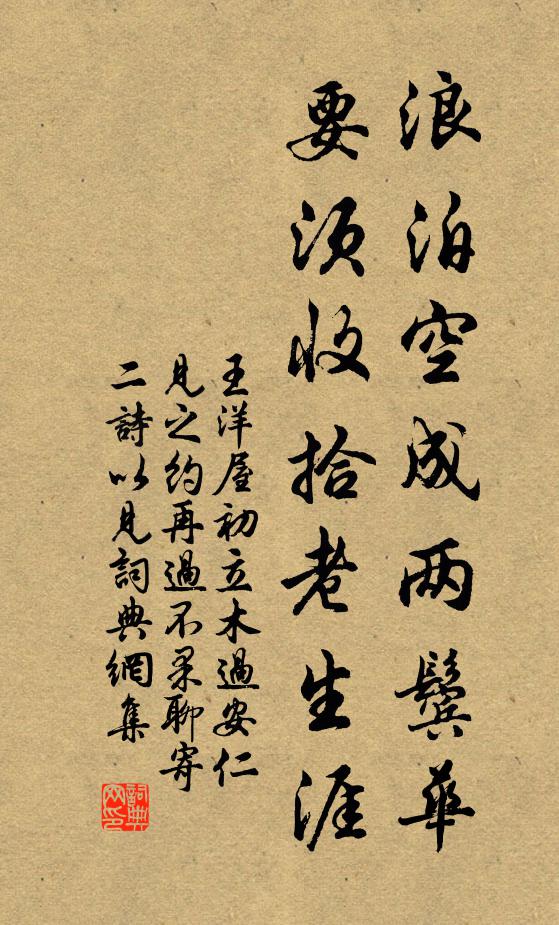 浪泊空成两鬓華
要须收拾老生涯
王洋屋初立木過安仁
見之約再過不果聊寄
二詩以見詞典網集
詞典
网印